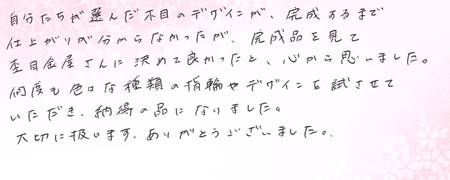 自分たちが選んだ木目のデザインが、完成するまで
仕上がりが分からなかったが、完成品を見て
杢目金屋さんに決めて良かったと、心から思いました。
何度も色々な種類の指輪やデザインを試させて
いただき、納得の品になりました。
大切に扱います、ありがとうございました。